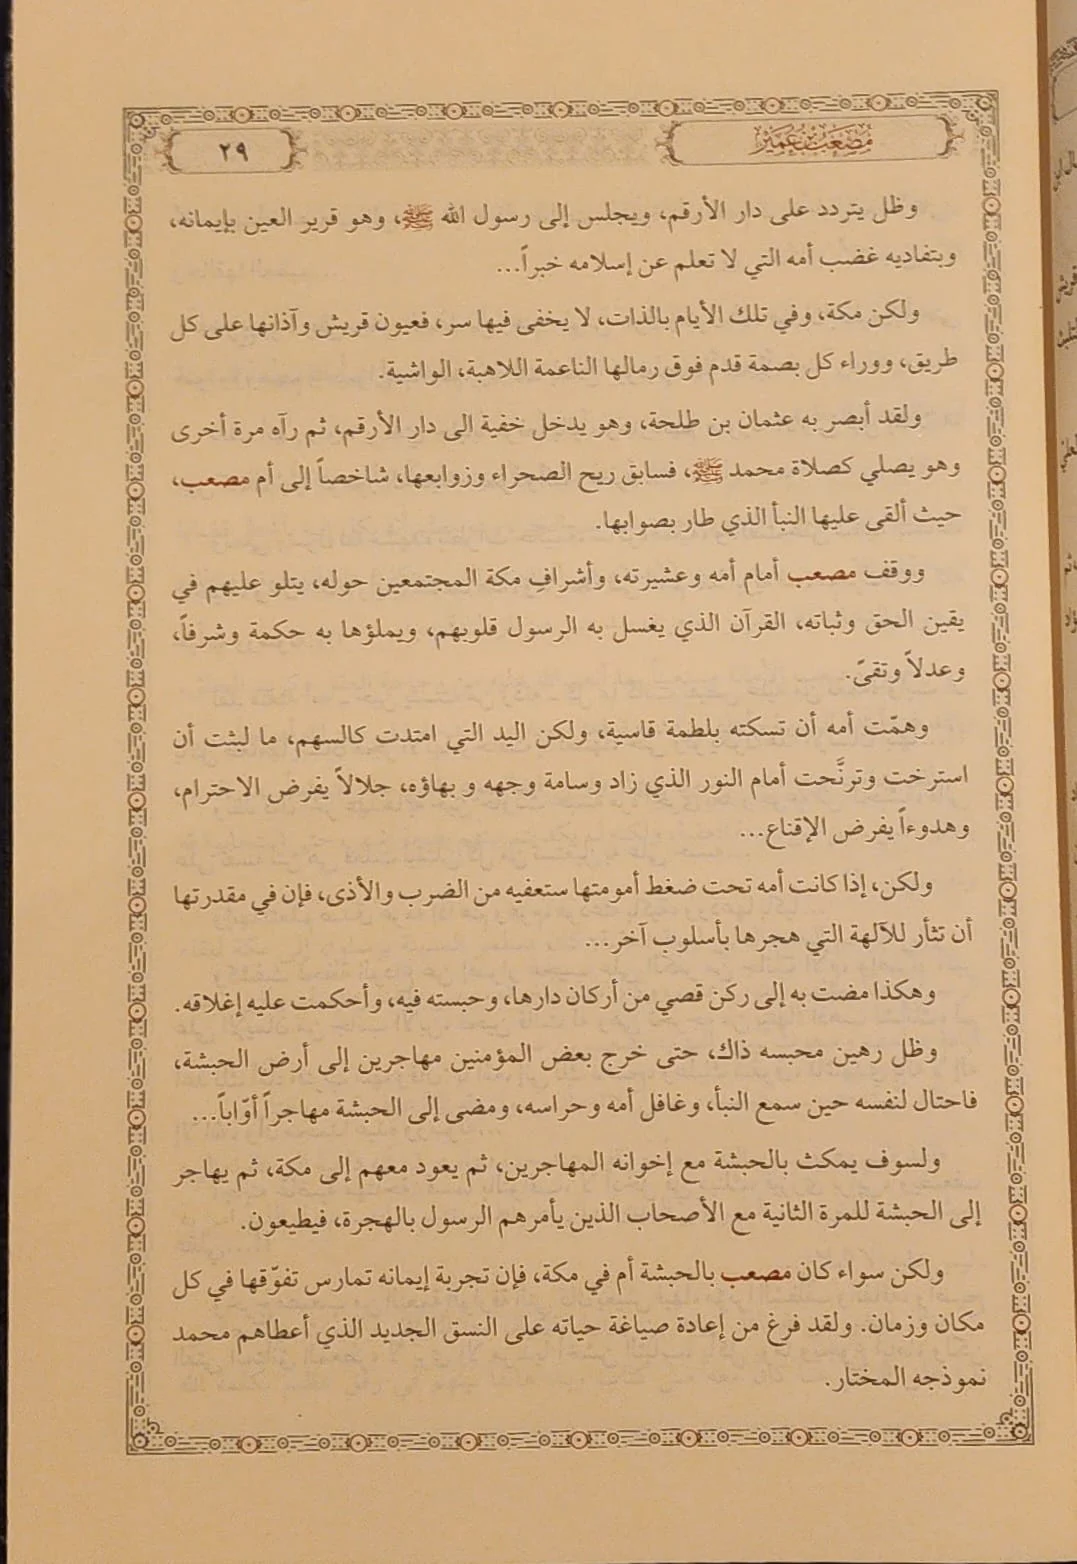 مصعب بن عمير
٢٩
وظل يتردد على دار الأرقم، ويجلس إلى رسول الله ﷺ، وهو قرير العين بإيمانه،
وبتفاديه غضب أمه التي لا تعلم عن إسلامه خبراً...
ولكن مكة، وفي تلك الأيام بالذات، لا يخفى فيها سر، فعيون قريش وآذانها على كل
طريق، ووراء كل بصمة قدم فوق رمالها الناعمة اللاهبة، الواشية.
ولقد أبصر به عثمان بن طلحة، وهو يدخل خفية الى دار الأرقم، ثم رآه مرة أخرى
وهو يصلي كصلاة محمد ﷺ، فسابق ريح الصحراء وزوابعها، شاخصاً إلى أم مصعب،
حيث ألقى عليها النبأ الذي طار بصوابها.
ووقف مصعب أمام أمه وعشيرته، وأشرافِ مكة المجتمعين حوله، يتلو عليهم في
يقين الحق وثباته، القرآن الذي يغسل به الرسول قلوبهم، ويملؤها به حكمة وشرفاً،
وعدلاً وتقىً.
وهمّت أمه أن تسكته بلطمة قاسية، ولكن اليد التي امتدت كالسهم، ما لبثت أن
استرخت وترنَّحت أمام النور الذي زاد وسامة وجهه و بهاؤه، جلالاً يفرض الاحترام،
وهدوءاً يفرض الإقناع...
ولكن، إذا كانت أمه تحت ضغط أمومتها ستعفيه من الضرب والأذى، فإن في مقدرتها
أن تثأر للآلهة التي هجرها بأسلوب آخر...
وهكذا مضت به إلى ركن قصي من أركان دارها، وحبسته فيه، وأحكمت عليه إغلاقه.
وظل رهين محبسه ذاك، حتى خرج بعض المؤمنين مهاجرين إلى أرض الحبشة،
فاحتال لنفسه حين سمع النبأ، وغافل أمه وحراسه، ومضى إلى الحبشة مهاجراً أوّاباً...
ولسوف يمكث بالحبشة مع إخوانه المهاجرين، ثم يعود معهم إلى مكة، ثم يهاجر
إلى الحبشة للمرة الثانية مع الأصحاب الذين يأمرهم الرسول بالهجرة، فيطيعون.
ولكن سواء كان مصعب بالحبشة أم في مكة، فإن تجربة إيمانه تمارس تفوّقها في كل
مكان وزمان. ولقد فرغ من إعادة صياغة حياته على النسق الجديد الذي أعطاهم محمد
نموذجه المختار.